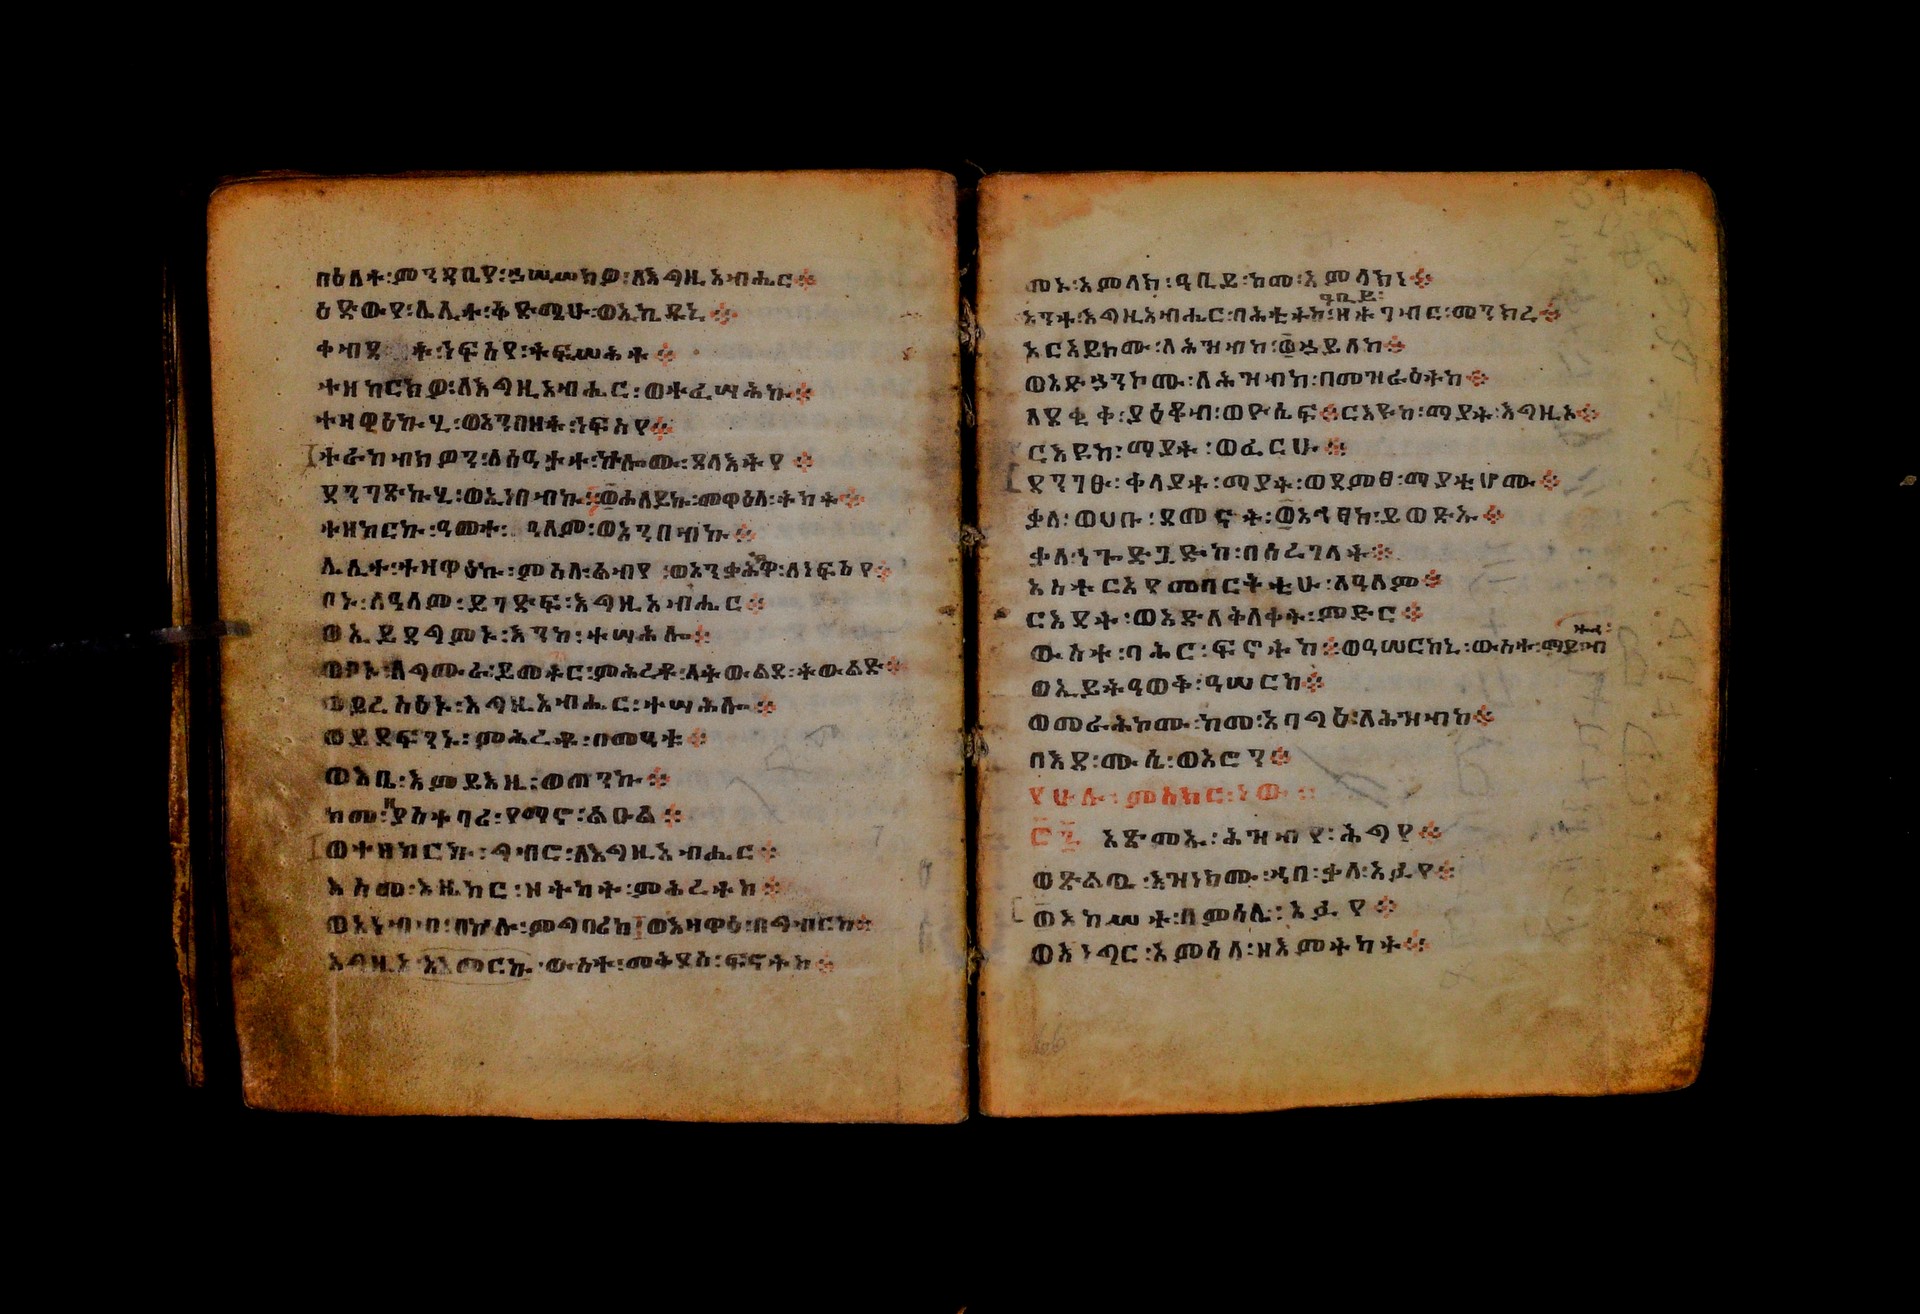 በዕለተ፡ምንዳቤየ፡ኀሠሥክዎ፡ለእግዚአብሔር፨
ዕድውየ፡ሌሊተ፡ቅድሜሁ፡ወኢኪዱኒ፨
ት፡ነፍስየ፡ተፍሥሕተ፨
ተዘከርክዎ፡ለእግዚአብሔር፡ወተፈሣሕኩ፨
ተዛዋዕኩሂ፡ወአንበዘት፡ነፍስየ፨
ተራከብክዎን፡ለሰዓታት፡ኵሎሙ፡ጸላእትየ፨
ደንገጽኩሂ፡ወኢነበብኩ፨ወሐለይኩ፡መዋዕለ፡ትካት፨
ተዘከርኩ፡ዓመተ፡ዓለም፡ወአንበብኩ፨
ሌሊተ፡ተዛዋዕኩ፡ምስለ፡ልብየ፡ወአንቃሕክዋ፡ለነፍስየ፨
ቦኑ፡ለዓለም፡ይገድፍ፡እግዚአብሔር፨
ወኢይደግምኑ፡እንከ፡ተሣሕሎ፨
ወቦኑ፡ለግሙራ፡ይመትር፡ምሕረቶ፡ለትውልደ፡ትውልድ፨
ወይረስዕኑ፡እግዚአብሔር፡ተሣሕሎ፨
ወይደፍንኑ፡ምሕረቶ፡በመዓቱ፨
ወእቤ፡እምይእዜ፡ወጠንኩ፨
ከመ፡ያስተባሪ፡የማኖ፡ልዑል፨
ወተዘከርኩ፡ግብሮ፡ለእግዚአብሔር፨
እስመ፡እዜከር፡ዘትካት፡ምሕረትከ፨
ወእነብብ፡በኵሉ፡ምግባሪከ ወእዛዋዕ፡በግብርከ፨
እግዚኦ ውስተ፡መቅደስ፡ፍኖትከ፨
መኑ፡አምላክ፡ዓቢይ፡ከመ፡አምላክነ፨
ዓቢይ፡
አንተ፡እግዚአብሔር፡ባሕቲትከ፡ዘትገብር፡መንክረ፨
አርአይኮሙ፡ለሕዝብከ፡ወኃይለከ፨
ወአድኃንኮሙ፡ለሕዝብከ፡በመዝራዕትከ፨
ለደቂቀ፡ያዕቆብ፡ወዮሴፍ፨ርእዩከ፡ማያት፡እግዚኦ፨
ርእዩከ፡ማያት፡ወፈርሁ፨
ደንገፁ፡ቀላያት፡ማያት፡ወደምፀ፡ማያቲሆሙ፨
ቃለ፡ወሀቡ፡ደመናት፡ወአሕፃከ፡ይወፅኡ፨
ቃለ፡ነጐድጓድከ፡በሰረገላት፨
አስተርአየ፡መባርቅቲሁ፡ለዓለም፨
ርእደት፡ወአድለቅለቀት፡ምድር፨
ውስተ፡ባሕር፡ፍኖትከ፨ወዓሠርከኒ፡ውስተ፡ማይ፡ብ
ዙኅ፡
ወኢይትዓወቅ፡ዓሠርከ፨
ወመራሕኮሙ፡ከመ፡አባግዕ፡ለሕዝብከ፨
በእደ፡ሙሴ፡ወአሮን፨
አጽምኡ፡ሕዝብየ፡ሕግየ፨
ወጽልዉ፡እዝነክሙ፡ኀበ፡ቃለ፡አፉየ፨
ወእከሥት፡በምሳሌ፡አፉየ፨
ወእነግር፡አምሳለ፡ዘእምትካት፨